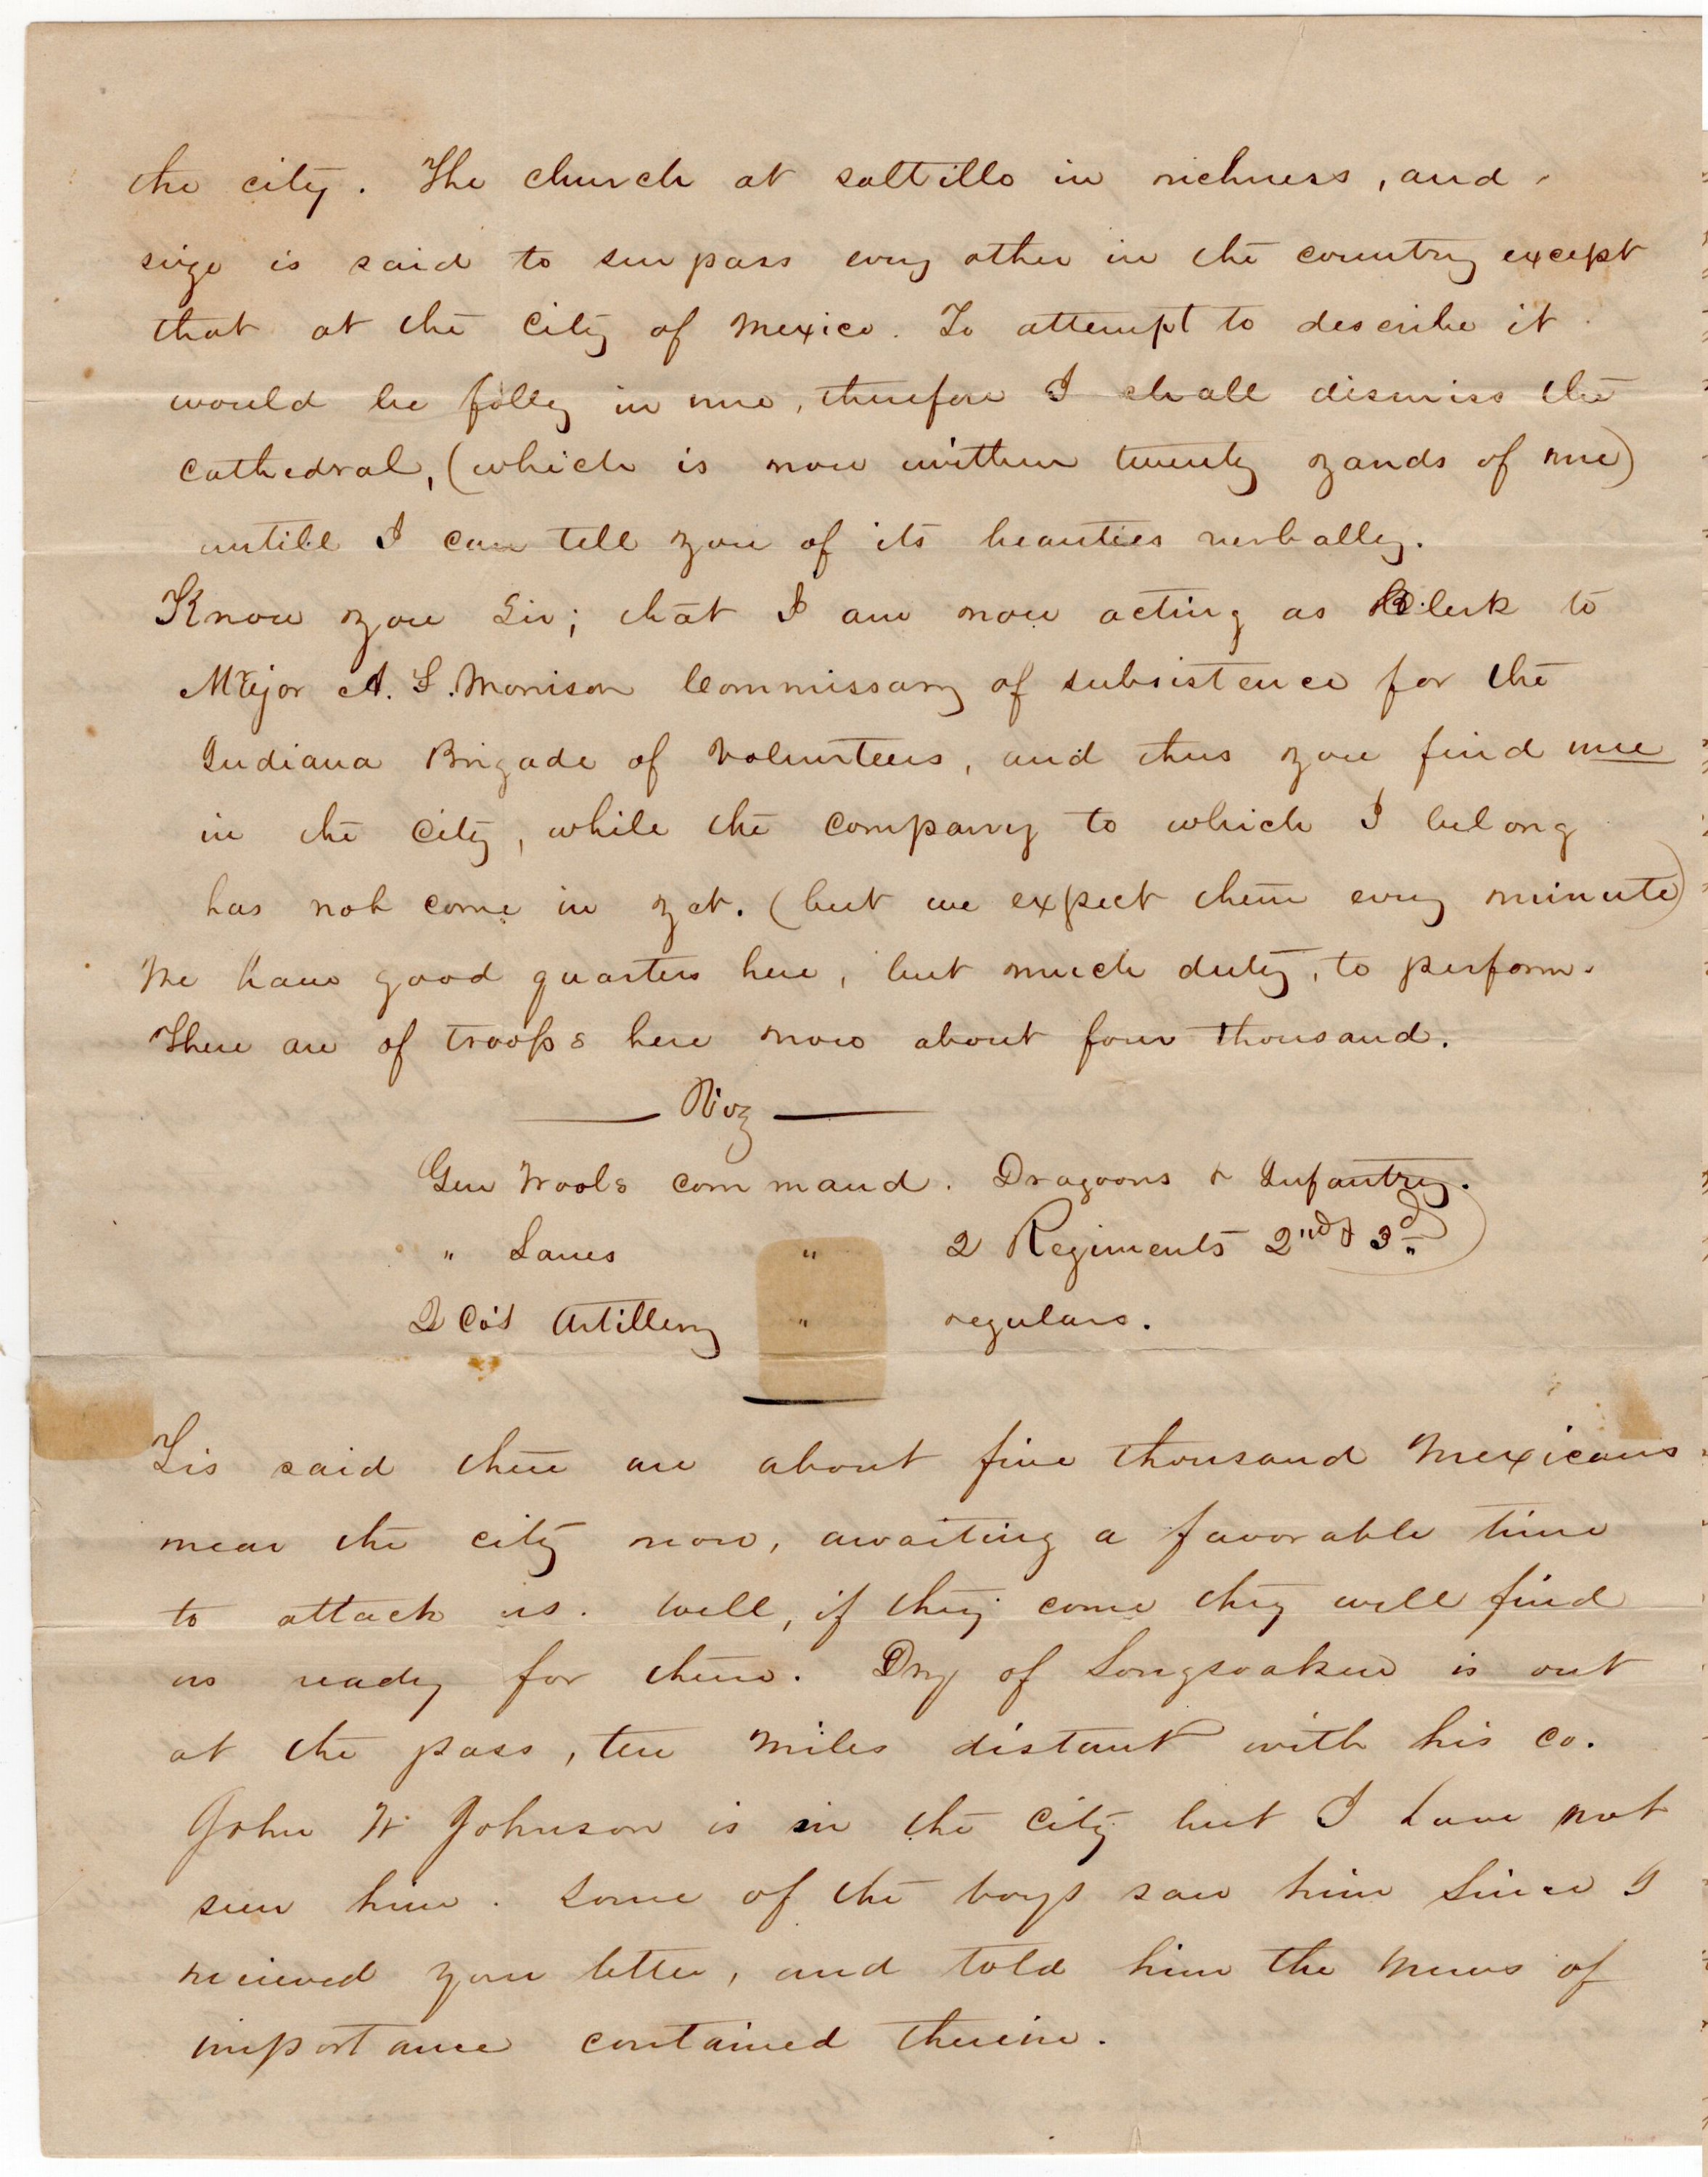 the city. The church at saltillo in richness, and
size is said to surpass every other in the country except
that at the City of Mexico. To attempt to describe it
would be folly in me, therefore I shall dismiss the
Cathedral, (which is now within twenty yards of me)
untill I can tell you of its beauties verbally.
Know you Sir; that I am now acting as Clerk to
Major A. S. Morrison Commissary of subsistence for the
Indiana Brigade of Volunteers, and thus you find me
in the City, while the company to which I belong
has not come in yet. (but we expect them every minute)
We have good quarters here, but much duty, to perform.
There are of troops here now about four thousand.
Viz
Gen Wools command. Dragoons & Infantry.
" Lanes " 2 Regiments 2nd & 3d
2 Co's Artillery " regulars.
Tis said there are about five thousand Mexicans
near the city now, awaiting a favorable time
to attack us. Well, if they come they will find
us ready for them. of is out
at the pass, ten miles distant with his Co.
John W Johnson is in the City but I have not
seen him. Some of the boys saw him since I
recieved your letter, and told him the news of
importance contained therein.